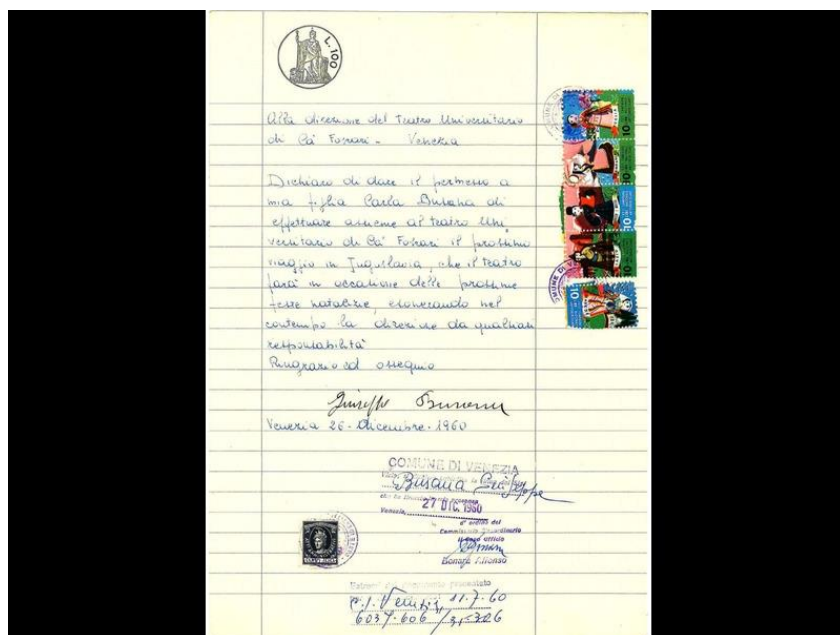 L. 100
Alla direzione del Teatro Universitario
di Ca' Foscari - Venezia
Dichiaro di dare il permesso a
mia figlia Carla Busana di
effettuare assieme al teatro Uni
versitario di Ca' Foscari il prossimo
viaggio in Jugoslavia, che il teatro
farà in occasione delle prossime
feste natalizie, esonerando nel
contempo la direzione da qualsiasi
responsabilità
Ringrazio ed ossequio
Giuseppe Busana
Venezia 26. dicembre. 1960
COMUNE DI VENEZIA
Busana Giuseppe
Venezia, 27 DIC. 1960
d' ordine del
Commissario Straordinario
Alfonso
Estremi del documento
P.S. Venezia, 11.7.60
10
10
10
10
10